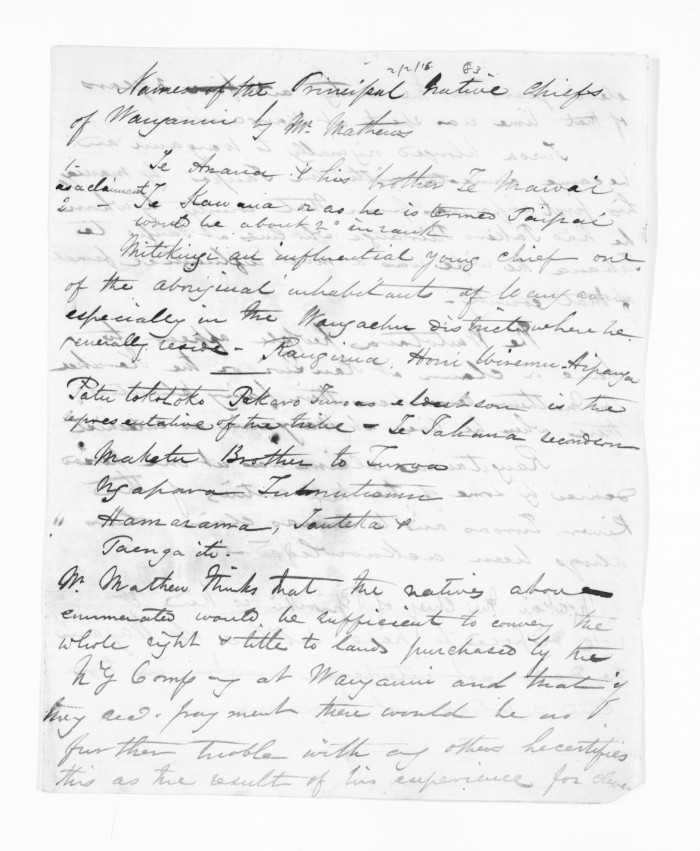 2/2/6 83
Names of the Principal native chiefs
of Wanganui by Mr. Mathews
1 - Te Anaua & his brother Te Mawai
as a claimant
2 - Te Kawana or as he is termed Paipai
would be about 2d in rank
Mitikingi an influential young chief one
of the aboriginal inhabitants of Wanganui
especially in the Wangaehu district where he
generally reside - Rangirua Honi Wiremu - Hipango
Patu tokotoko Pekaro Turoas eldest son is the
representative of the tribe - Te Tahana second son
Maketu Brother to Turoa
Ngapara
Hamarama, Tauteka &
Taenga iti.
Mr. Mathew thinks that the natives above
enumerated would be sufficient to convey the
whole right & title to lands purchased by the
N Z Compy at Wanganui and that if
they recd. payment there would be no
further trouble with any others he certifies
this as the result of his experience for eleven